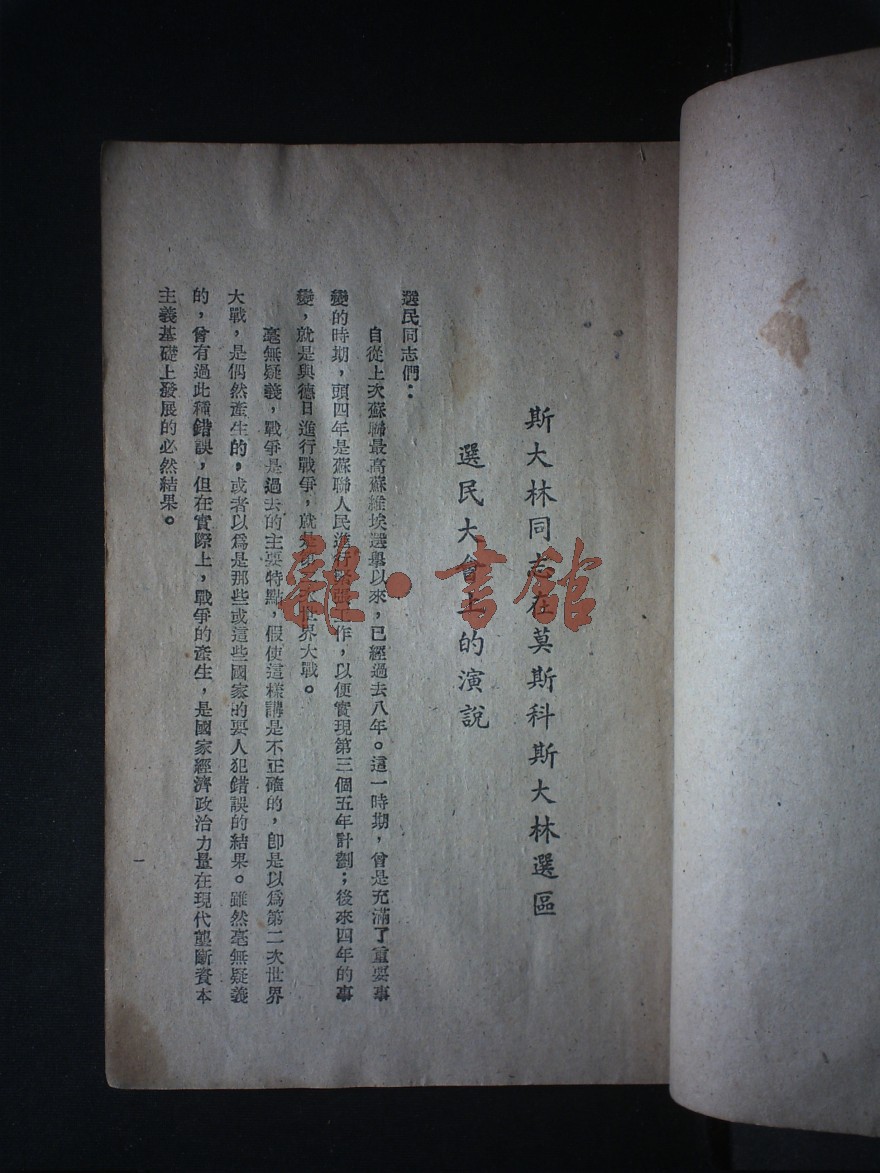 斯大林同志在莫斯科斯大林選區
選民大會上的演說
選民同志們：
自從上次蘇聯最高蘇維埃選舉以來，已經過去八年。這一時期，曾是充滿了重要事
變的時期，頭四年是蘇聯人民進行緊張工作，以便實現第三個五年計劃；後來四年的事
變，就是與德日進行戰爭，就是第二次世界大戰。
毫無疑義，戰爭是過去的主要特點，假使這樣講是不正確的，卽是以爲第二次世界
大戰，是偶然產生的，或者以爲是那些或這些國家的要人犯錯誤的結果。雖然毫無疑義
的，曾有過此種錯誤，但在實際上，戰爭的產生，是國家經濟政治力量在現代壟斷資本
主義基礎上發展的必然結果。
一
雜·書館